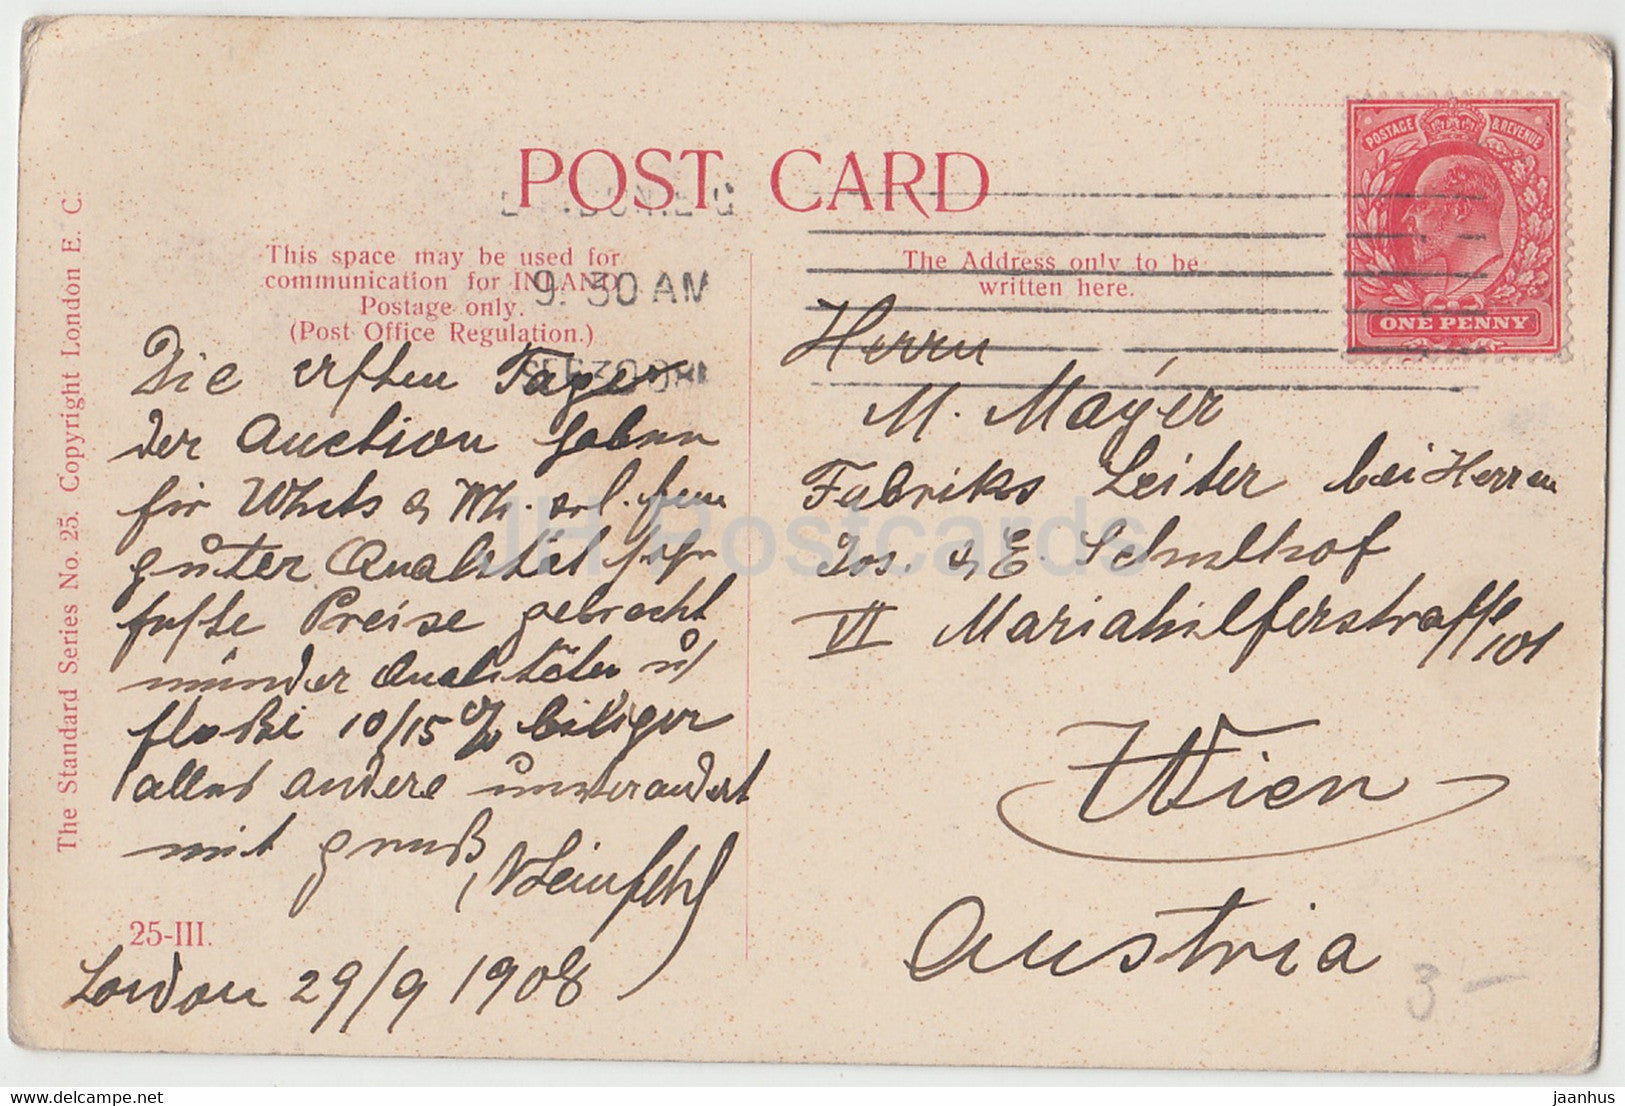 POST CARD
LONDON. E.C
9. 30 AM
SEP 30 08
This space may be used for
communication for INLAND
Postage only.
(Post Office Regulation.)
The Address only to be
written here.
POSTAGE & REVENUE
ONE PENNY
The Standard Series No. 25. Copyright London E. C.
Die ersten Tage
der Auction haben
für Whets & Wh.
guter Qualität sehr
feste Preise gebracht
minder Qualitäten
10/15 % billiger
alles andere unverandert
mit gruß
25-III.
London 29/9 1908
Herrn
M. Mayer
Fabriks Leiter bei Herren
Jos. & E. Schulhof
VI Mariahilferstraße 101
Wien
Austria
3 -
JH Postcards
www.delcampe.net
jaanhus